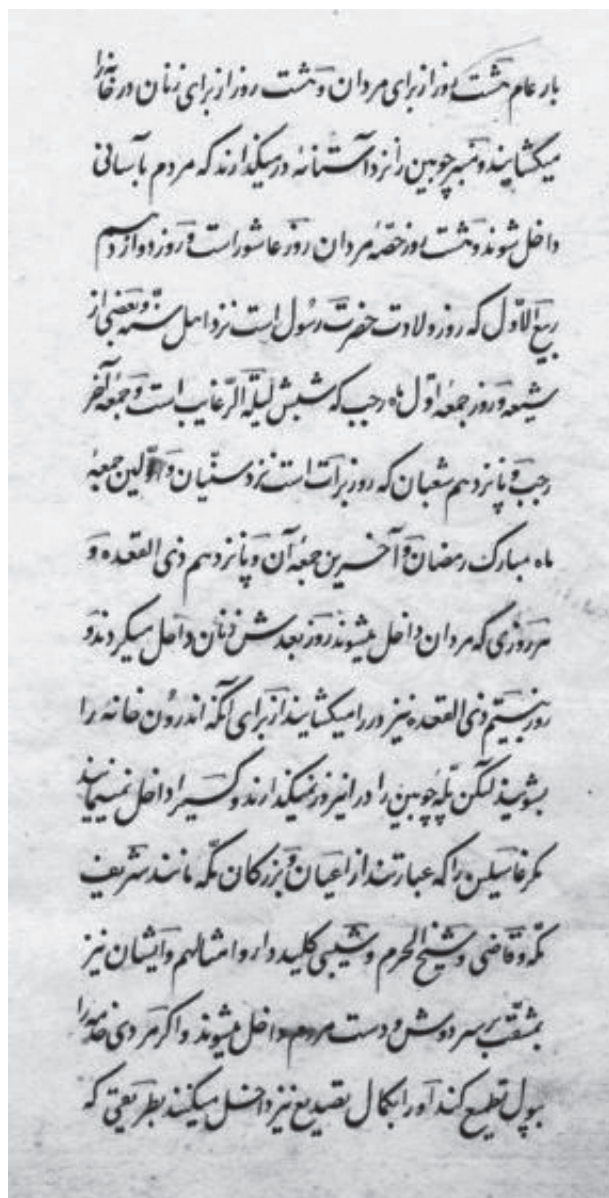 بار عام هشت روز از برای مردان و هشت روز از برای زنان در خانه را
میکشایند و منبر چوبین را نزد آستانهٔ در میکذارند که مردم بآسانی
داخل شوند و هشت روز حصّهٔ مردان روز عاشوراست و روز دوازدهم
ربیع الاوّل که روز ولادت حضرت رسول است نزد اهل سنّة و بعضی از
شیعه و روز جمعهٔ اوّل ماه رجب که شبش لیلة الرّغایب است و جمعهٔ آخر
رجب و پانزدهم شعبان که روز برآت است نزد سنّیان و اوّلین جمعهٔ
ماه مبارک رمضان و آخرین جمعهٔ آن و پانزدهم ذی القعده و
هر روزی که مردان داخل میشوند روز بعدش زنان داخل میکردند و
روز بیستم ذی القعده نیز در را میکشایند از برای آنکه اندرون خانه را
بشویند لکن پلّهٔ چوبین را در آنروز نمیکذارند و کسیرا داخل نمینمایند
مکر غاسلین را که عبارتند از اعیان و بزرکان مکّه مانند شریف
مکّه و قاضی و شیخ الحرم و شیبی کلیددار و امثالهم و ایشان نیز
بمشقّت بر سر دوش و دست مردم داخل میشوند و اکر مردی خدمه را
بپول تطمیع کند او را بکمال تصدیع نیز داخل میکنند بطریقتی که